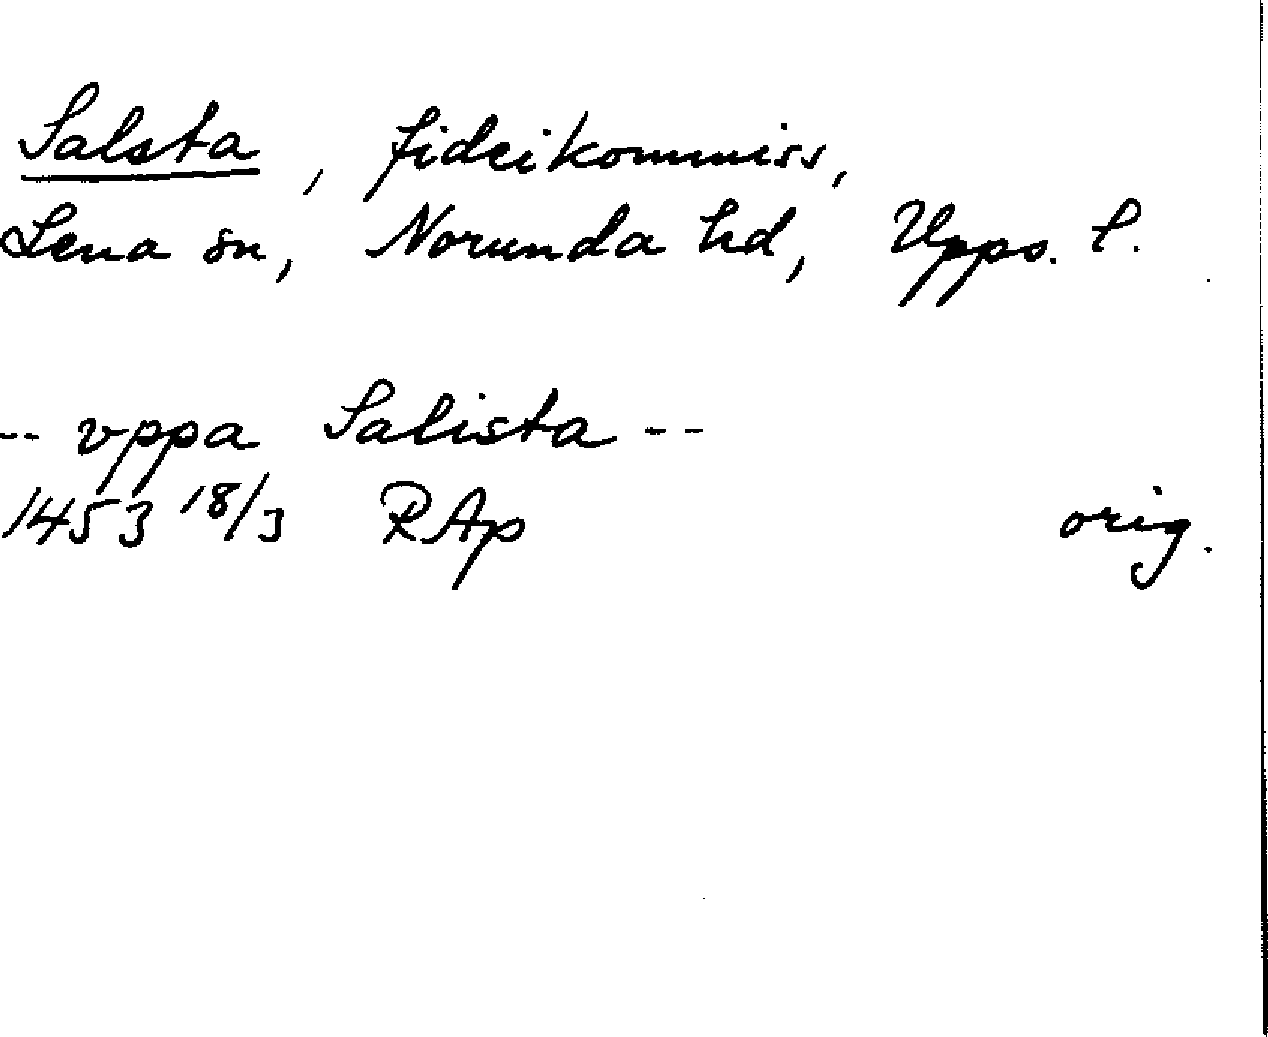 Salsta, fideikommiss,
Lena sn, Norunda hd, Upps. l.
-- vppa Salista --
1453 18/3 RAp orig.